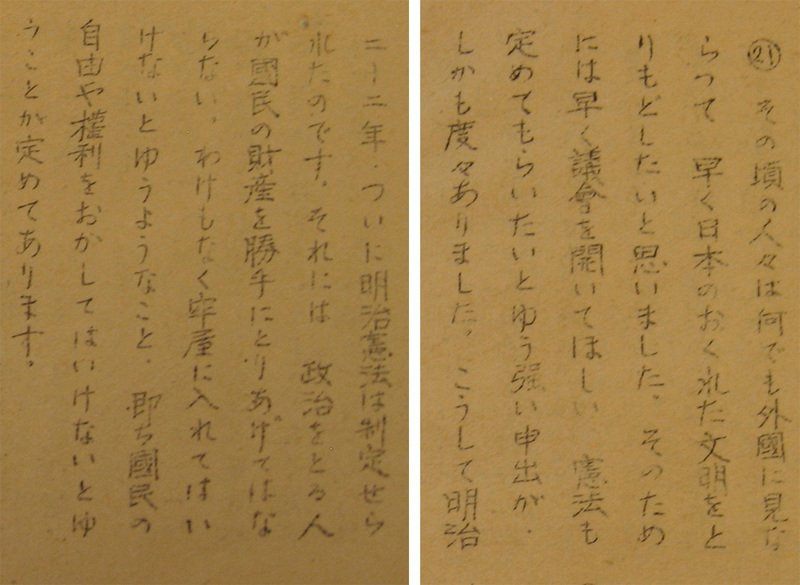 ㉑ その頃の人々は何でも外國に見な
らつて 早く日本のおくれた文明をと
りもどしたいと思いました。そのため
には早く議會を開いてほしい 憲法も
定めてもらいたいとゆう強い申出が、
しかも度々ありました。こうして明治
二十二年、ついに明治憲法は制定せら
れたのです。それには 政治をとる人
が國民の財産を勝手にとりあげてはな
らない。わけもなく牢屋に入れてはい
けないとゆうようなこと、即ち國民の
自由や權利をおかしてはいけないとゆ
うことが定めてあります。